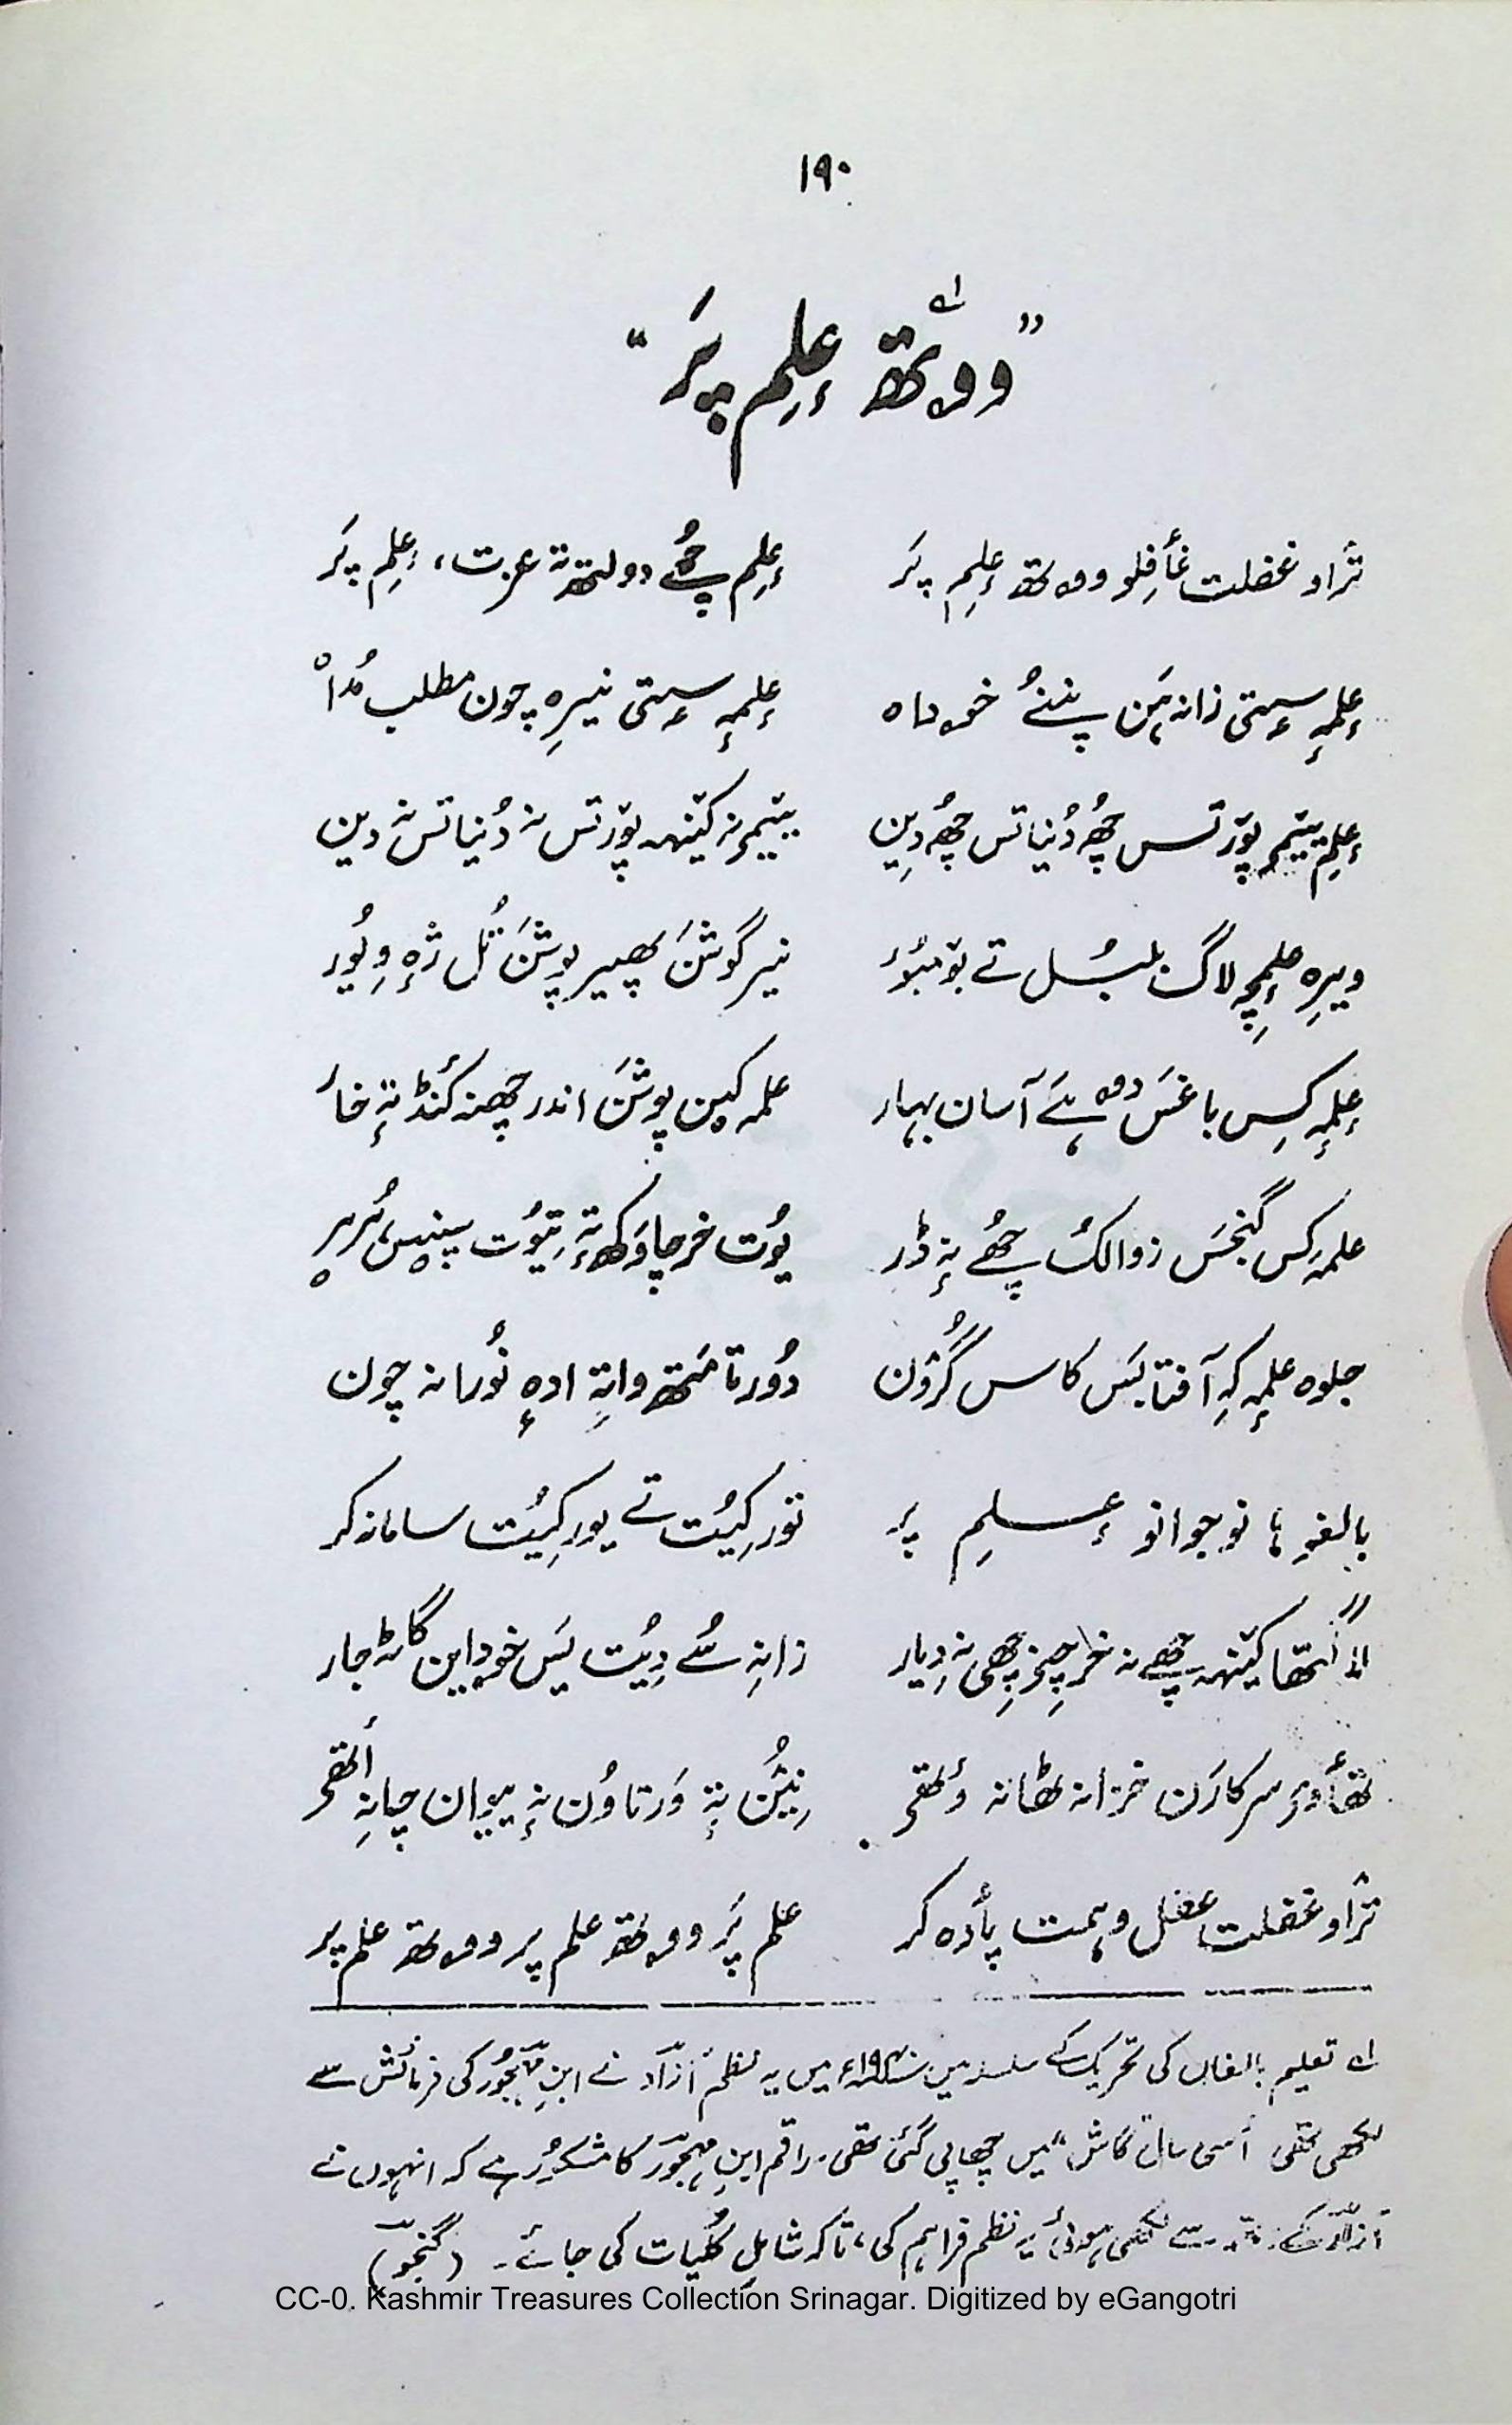 ۱۹۰
”ووتھ عِلِم پَر“ ؎۱
ترٛاو غفلت غأفِلو ووتھ عِلِم پَر عِلِم چھُے دولتھ تہٕ عزت، عِلِم پَر
عِلمہٕ سٟتی زانہ ہَن پننُے خودا عِلمہٕ سٟتی نیرِہ چون مطلب مُدا
عِلِم ییٚمۍ پوٚر تس چھُ دُنیا تس چھُ دِین ییٚمۍ نہ کینٛہہ پوٚر تس نہ دُنیا تس نہ دین
ویرِہ عِلمچہِ لاگ بلبُل تے بوٚمبُر نیر گوشَن پھیر پوشَن تُل ژٕہ وِیُور
عِلمہٕ کِس باغَس دوہ ہَے آسان بہار علمہ کین پوشَن اندر چھنہ کَنڈ تہٕ خار
علمہٕ کس گنجَس زوالُک چھُے نہٕ ڈر یُوت خرچاوَکھ تہٕ تِیُوت سپنِس ہُرہر
جلوہ علمہٕ کہِ آفتابَس کاس گرُٛون دُور تامَتھ واتہِ ادہٕ نُورانہ چون
بالغو ہا نوجوانو عِلِم پر توٚر کِیُت تے یور کِیُت سامانہ کر
کتھا کینٛہہ چھے نہ خرچ چھی نہ دِیار زانہِ سُے دِیُت یَس خودایَن گاٹہ جار
تھأوۍ سرکارَن خزانہ ٹھانہ وٕتھۍ نِیُن تہٕ وَرتاوُن نہٕ ہیوان چانہِ أتھۍ
ترٛاو غفلت عقل و ہمت پأدہ کر علم پَر ووتھ علم پر ووتھ علم پر
؎۱ تعلیم بالغاں کی تحریک کے سلسلہ میں میں یہ نظم آزاد نے ابنِ مہجُور کی فرمائش سے
لکھی تھی اُسی سال ”گاش“ میں چھاپی گئی تھی۔ راقم ابنِ مہجُور کا مشکُور ہے کہ انہوں نے
آزاد کے سے لکھی ہوئی یہ نظم فراہم کی، تاکہ شاملِ کُلیات کی جائے۔ (گنجُو)
CC-0. Kashmir Treasures Collection Srinagar. Digitized by eGangotri